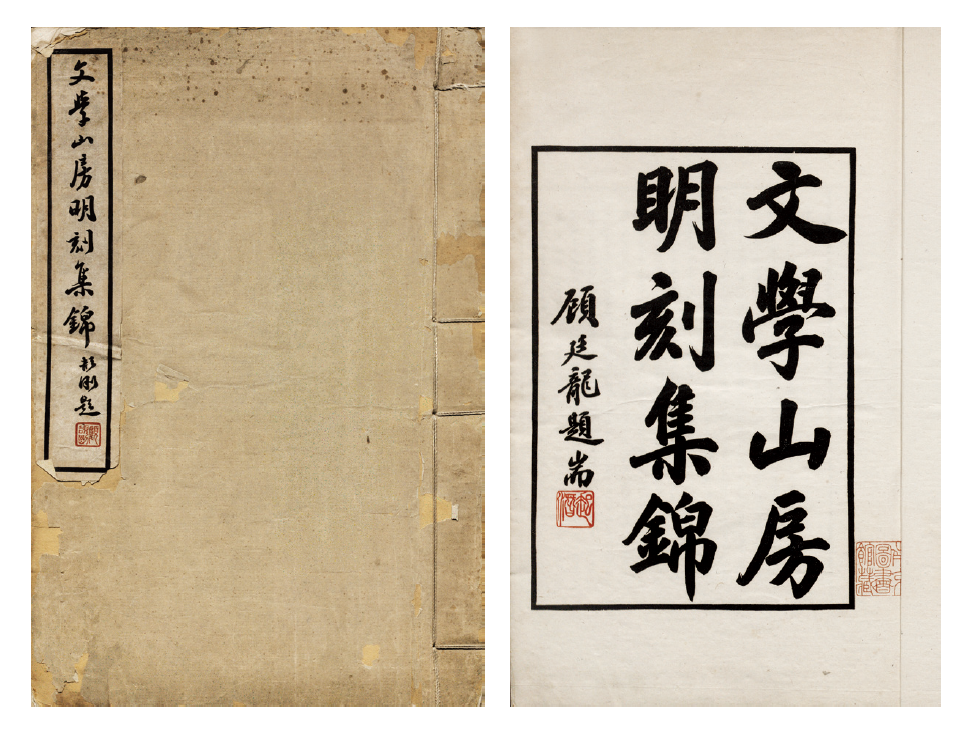 文學山房明刻集錦
顧廷龍題
文學山房
明刻集錦
顧廷龍題耑